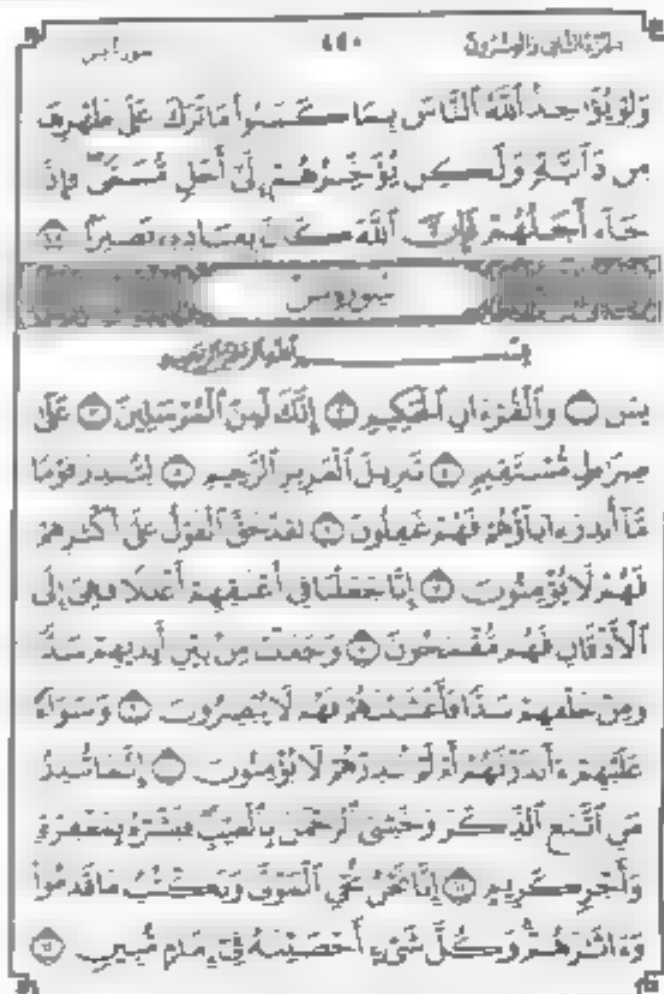 الجزء الثاني والعشرون ٤٤٠ سورة يس
وَلَوْ يُؤَاخِذُ ٱللَّهُ ٱلنَّاسَ بِمَا كَسَبُوا۟ مَا تَرَكَ عَلَىٰ ظَهْرِهَا
مِن دَآبَّةٍ وَلَٰكِن يُؤَخِّرُهُمْ إِلَىٰٓ أَجَلٍ مُّسَمًّى فَإِذَا
جَآءَ أَجَلُهُمْ فَإِنَّ ٱللَّهَ كَانَ بِعِبَادِهِۦ بَصِيرًۢا ٤٥
سورة يس
بِسْمِ ٱللَّهِ ٱلرَّحْمَٰنِ ٱلرَّحِيمِ
يسٓ ١ وَٱلْقُرْءَانِ ٱلْحَكِيمِ ٢ إِنَّكَ لَمِنَ ٱلْمُرْسَلِينَ ٣ عَلَىٰ
صِرَٰطٍ مُّسْتَقِيمٍ ٤ تَنزِيلَ ٱلْعَزِيزِ ٱلرَّحِيمِ ٥ لِتُنذِرَ قَوْمًا
مَّآ أُنذِرَ ءَابَآؤُهُمْ فَهُمْ غَٰفِلُونَ ٦ لَقَدْ حَقَّ ٱلْقَوْلُ عَلَىٰٓ أَكْثَرِهِمْ
فَهُمْ لَا يُؤْمِنُونَ ٧ إِنَّا جَعَلْنَا فِىٓ أَعْنَٰقِهِمْ أَغْلَٰلًا فَهِىَ إِلَى
ٱلْأَذْقَانِ فَهُم مُّقْمَحُونَ ٨ وَجَعَلْنَا مِنۢ بَيْنِ أَيْدِيهِمْ سَدًّا
وَمِنْ خَلْفِهِمْ سَدًّا فَأَغْشَيْنَٰهُمْ فَهُمْ لَا يُبْصِرُونَ ٩ وَسَوَآءٌ
عَلَيْهِمْ ءَأَنذَرْتَهُمْ أَمْ لَمْ تُنذِرْهُمْ لَا يُؤْمِنُونَ ١٠ إِنَّمَا تُنذِرُ
مَنِ ٱتَّبَعَ ٱلذِّكْرَ وَخَشِىَ ٱلرَّحْمَٰنَ بِٱلْغَيْبِ فَبَشِّرْهُ بِمَغْفِرَةٍ
وَأَجْرٍ كَرِيمٍ ١١ إِنَّا نَحْنُ نُحْىِ ٱلْمَوْتَىٰ وَنَكْتُبُ مَا قَدَّمُوا۟
وَءَاثَٰرَهُمْ وَكُلَّ شَىْءٍ أَحْصَيْنَٰهُ فِىٓ إِمَامٍ مُّبِينٍ ١٢